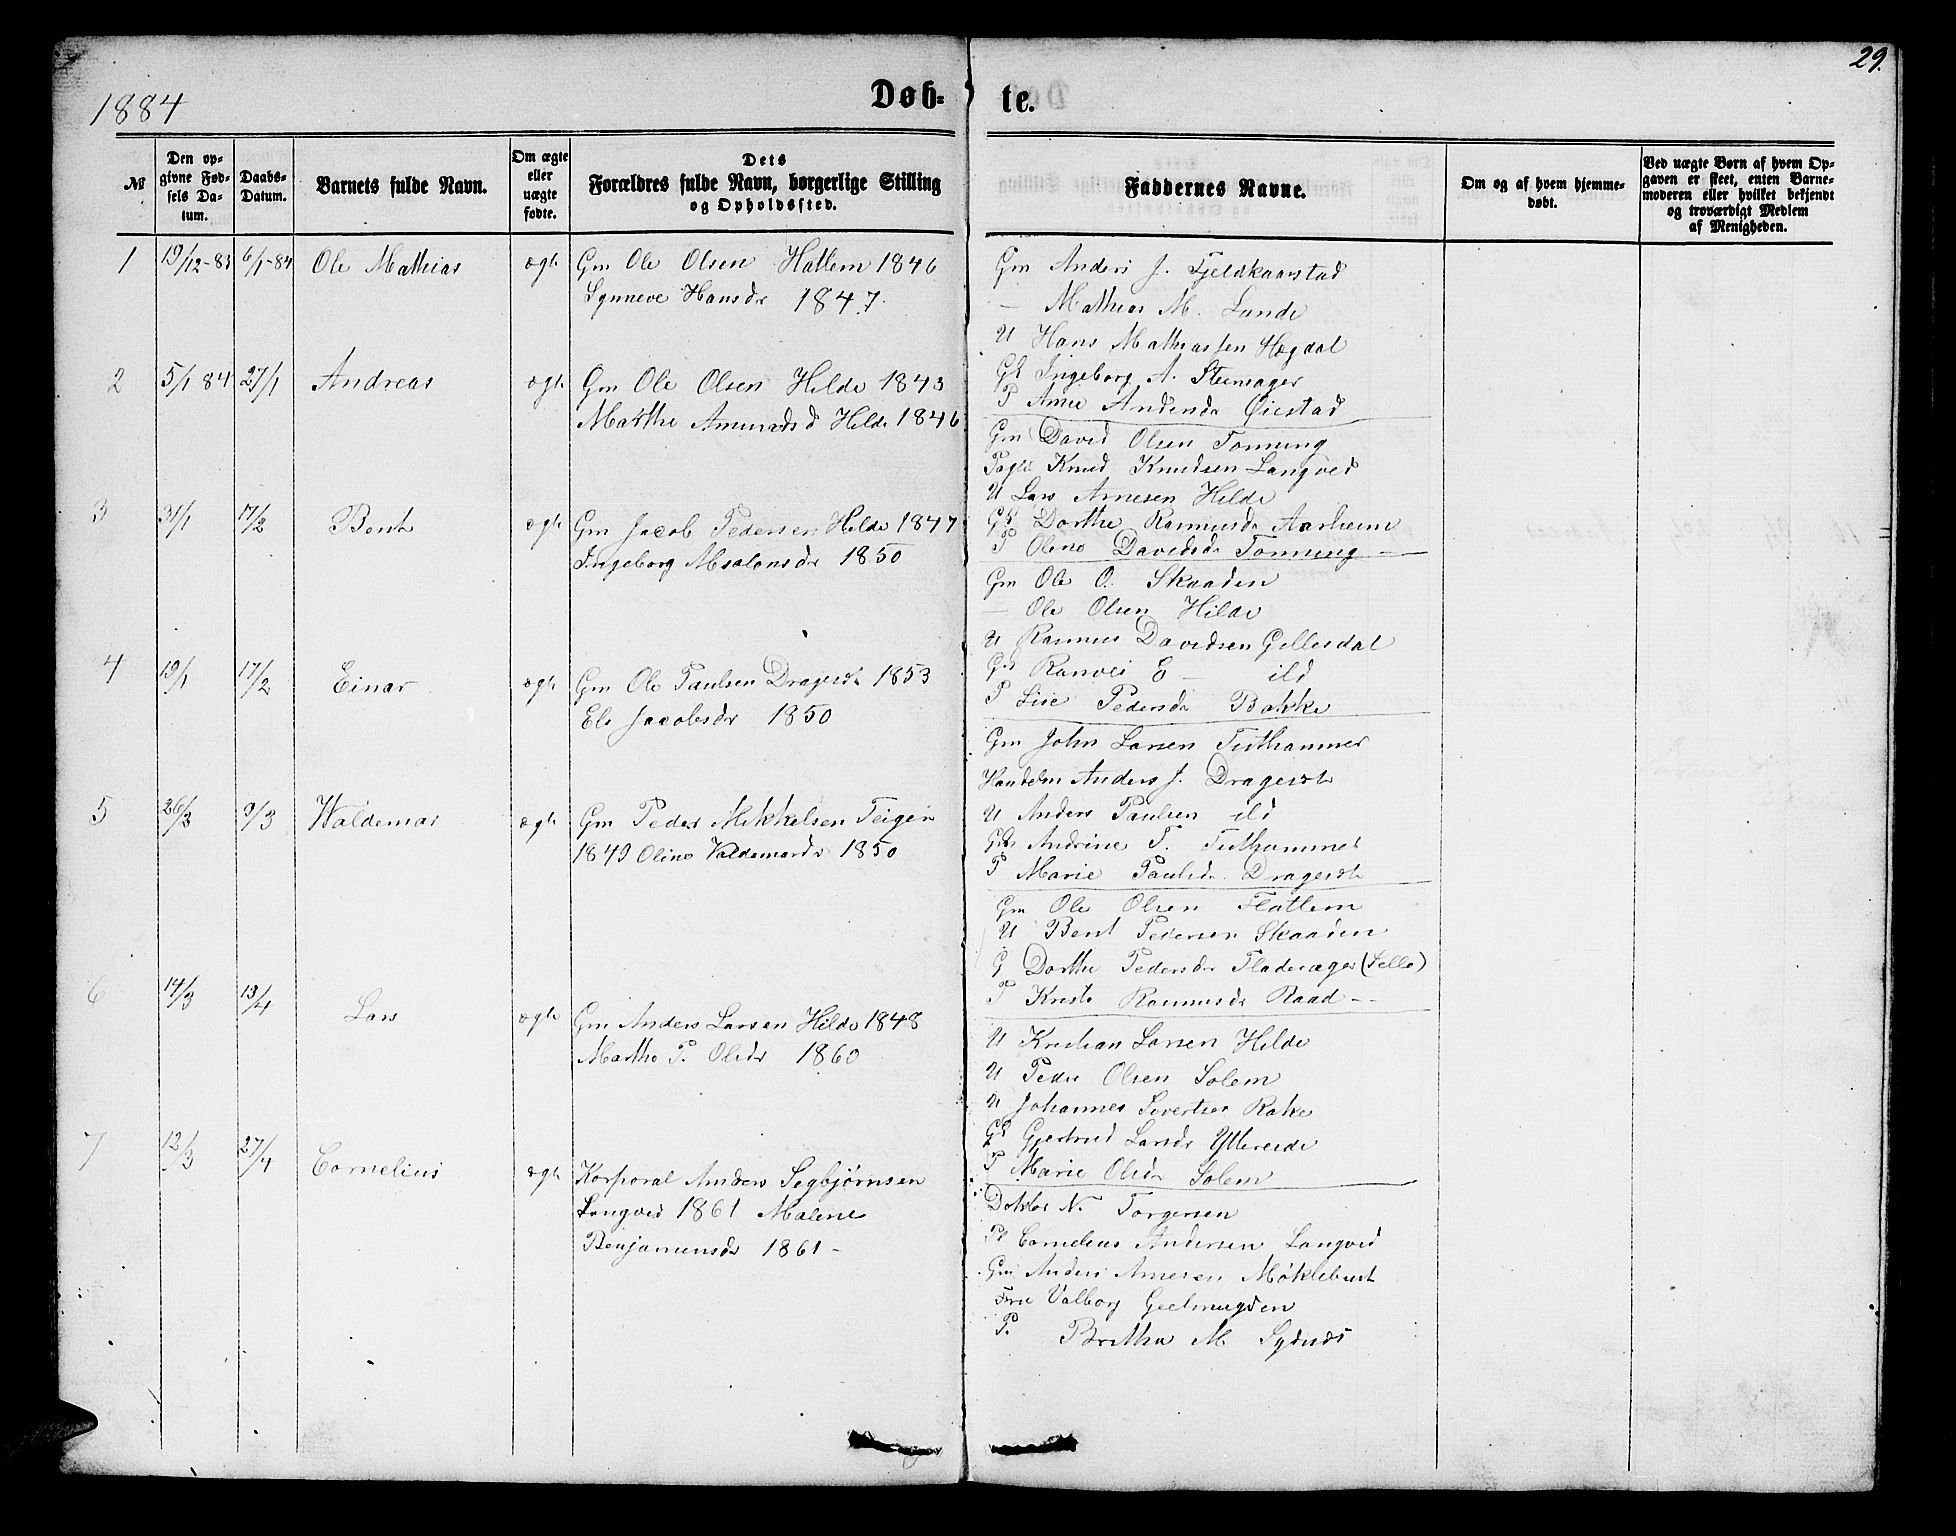 29.
1884
Døb-
te.
№
Den op-
givne Fød-
sels Da-
tum.
Daabs-
Datum.
Barnets fulde Navn.
Om ægte
eller
uægte
fødte.
Dets
Forældres fulde Navn, borgerlige Stilling
og Opholdssted.
Faddernes Navne.
Om og af hvem hjemme-
døbt.
Ved uægte Børn af hvem Op-
gaven er skeet, enten Barne-
moderen eller hvilket bekjendt
og troværdigt Medlem
af Menigheden.
1 19/12-83 6/1-84 Ole Mathias ægte Gm Ole Olsen Hatlem 1846
Synneve Hansdr 1847
Gm Anders J. Fjeldkaarstad
— Mathias M. Lunde
U Hans Mathiassen Høgdal
Gk Ingeborg A. Steensager
P Anne Andersdr Øiestad
2 5/1 84 27/1 Andreas ægte Gm Ole Olsen Hilde 1843
Marthe Amundsd Hilde 1846
Gm David Olsen Tonning
Knud Knudsen Langved
U Lars Arnesen Hilde
Gk Dorthe Rasmusdr Aarheim
P Oline Davidsdr Tonning —
3 31/1 17/2 Bent ægte Gm Jacob Pedersen Hilde 1847
Ingeborg Absalonsdr 1850
Gm Ole O. Skaaden
— Ole Olsen Hilde
U Rasmus Davidsen Gillesdal
Gk Ranvei E — ild
P Lise Pedersdr Bakke
4 19/1 17/2 Einar ægte Gm Ole Paulsen Dragesdt 1853
Eli Jacobsdr 1850
Gm John Larsen Tisthammer
Handelsm Anders J. Dragesdt
U Anders Paulsen ild
Gk Andrine T. Tisthammer
P Marie Paulsdr Dragesdt
5 26/3 9/3 Waldemar ægte Gm Peder Mikkelsen Teigen
1849 Oline Valdemardr 1850
Gm Ole Olsen Flatlem
U Bent Pedersen Skaaden
G Dorthe Pedersdr Fladeræger (Selle)
P Kristi Rasmusdr Raad --
6 14/3 13/4 Lars ægte Gm Anders Larsen Hilde 1848
Marthe P. Olsdr 1860
U Kristian Larsen Hilde
U Peder Olsen Solem
U Johannes Sivertsen Rake
Gk Gjertrud Larsdr Ytreeide
P Marie Olsdr Solem
7 12/3 27/4 Cornelius ægte Korporal Anders Segbjørnsen
Langved 1861 Malene
Benjamensdr 1861 -
Doktor N. Torgersen
Cornelius Andersen Langved
Gm Anders Arnesen Møklebust
Fru Valborg Geelmuyden
P. Brithe M